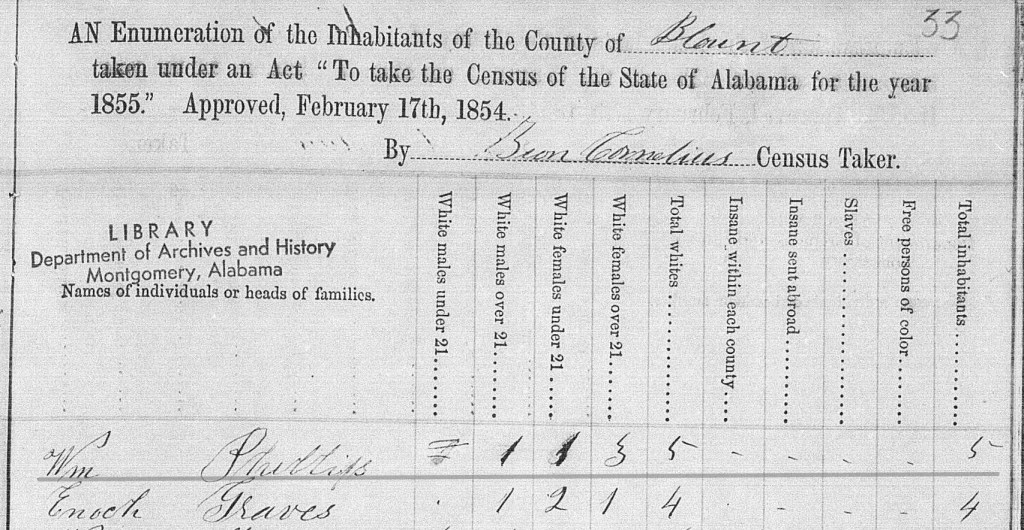 33
AN Enumeration of the Inhabitants of the County of Blount
taken under an Act "To take the Census of the State of Alabama for the year
1855." Approved, February 17th, 1854.
By Beon Cornelius Census Taker.
LIBRARY
Department of Archives and History
Montgomery, Alabama
Names of individuals or heads of families.
White males under 21
White males over 21
White females under 21
White females over 21
Total whites
Insane within each county
Insane sent abroad
Slaves
Free persons of color
Total inhabitants
Wm Phillips 1 1 3 5 - - - - 5
Enoch Graves . 1 2 1 4 - - - - 4